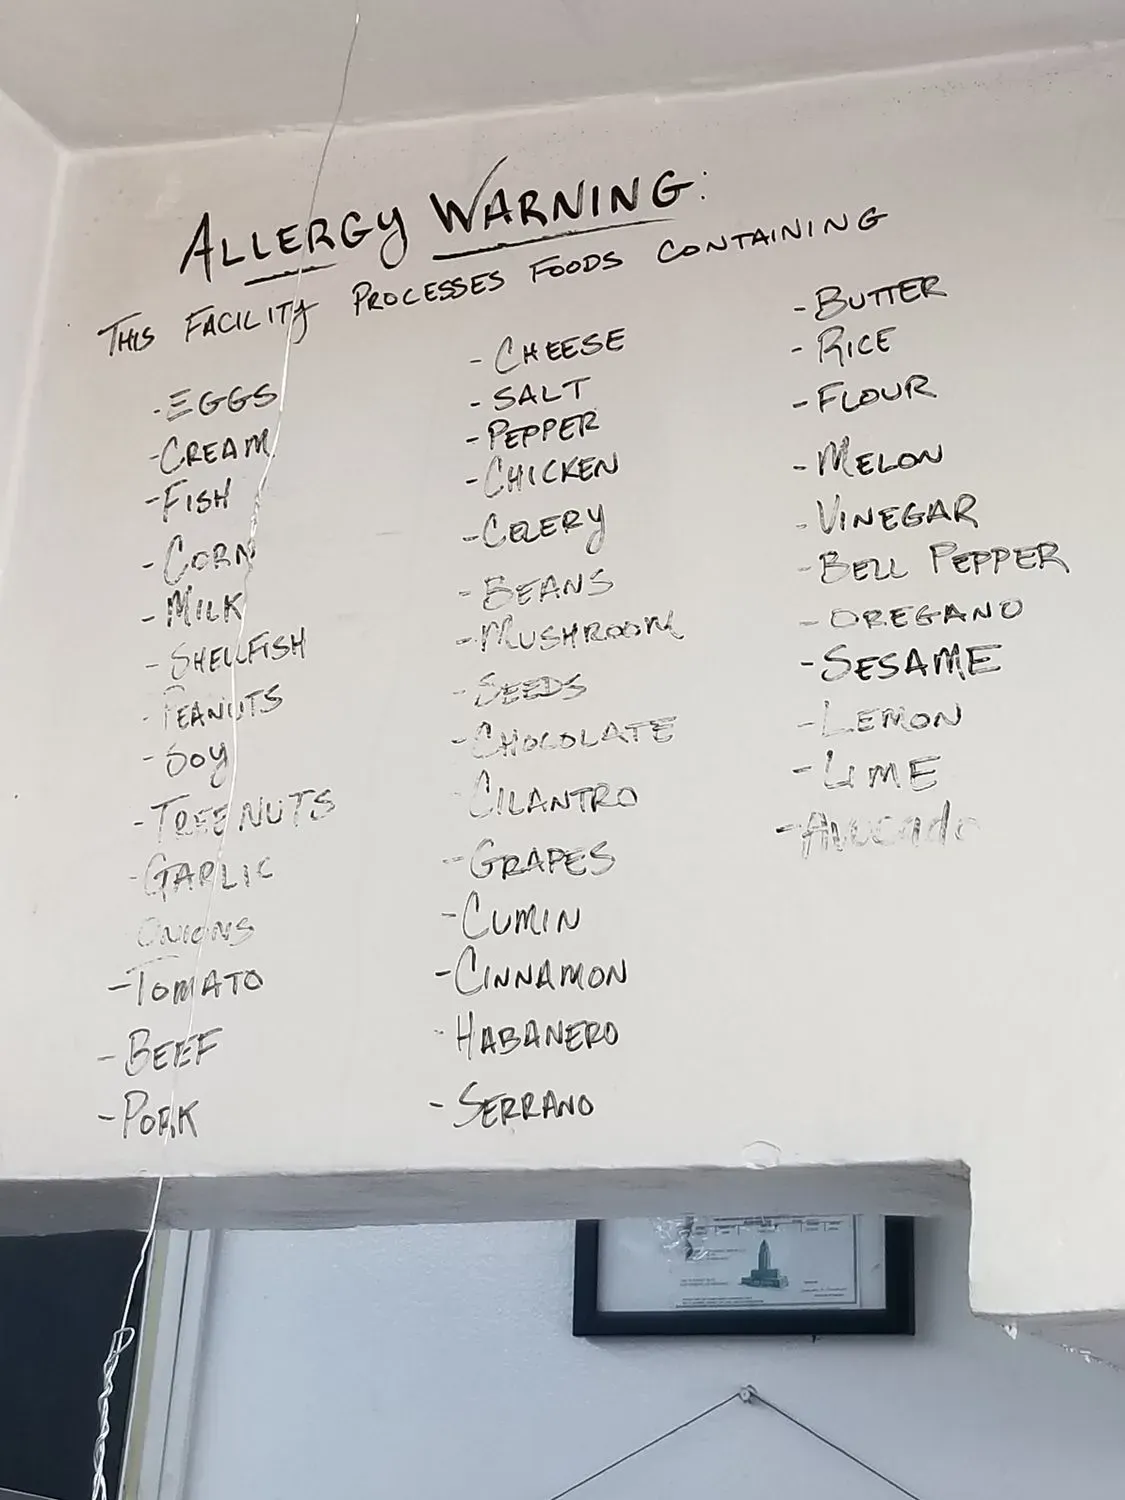 ALLERGY WARNING:
THIS FACILITY PROCESSES FOODS CONTAINING
-EGGS
-CREAM
-FISH
-CORN
-MILK
-SHELLFISH
-PEANUTS
-SOY
-TREE NUTS
-GARLIC
ONIONS
-TOMATO
-BEEF
-PORK
-CHEESE
-SALT
-PEPPER
-CHICKEN
-CELERY
-BEANS
-MUSHROOM
-SEEDS
-CHOCOLATE
-CILANTRO
-GRAPES
-CUMIN
-CINNAMON
-HABANERO
-SERRANO
-BUTTER
-RICE
-FLOUR
-MELON
-VINEGAR
-BELL PEPPER
-OREGANO
-SESAME
-LEMON
-LIME
-Avocado